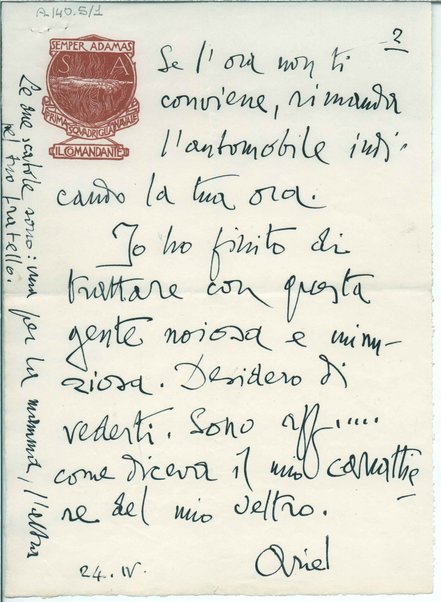 A.140.5/1
2
SEMPER ADAMAS
S A
PRIMA SQUADRIGLIA NAVALE
IL COMANDANTE
Se l'ora non ti
conviene, rimanda
l'automobile indi-
cando la tua ora.
Io ho finito di
trattare con questa
gente noiosa e minu-
ziosa. Desidero di
vederti. Sono aff.....
come diceva il mio
re del mio veltro.
Ariel
24. IV.
Le due scatole sono: una per la mamma, l'altra
pel tuo fratello.